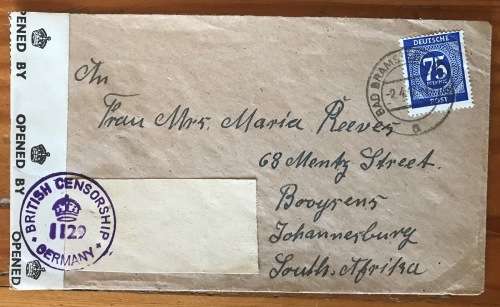 OPENED BY
OPENED BY
OPENED
BRITISH CENSORSHIP
1129
GERMANY
DEUTSCHE
75
PFENNIG
POST
BAD BRAMS
-2.4.
a
An
Frau Mrs. Maria Reeves
68 Mentz Street.
Booysens
Johannesburg
South-Afrika